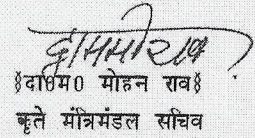 §दा0म0 मोहन राव§
कृते मंत्रिमंडल सचिव